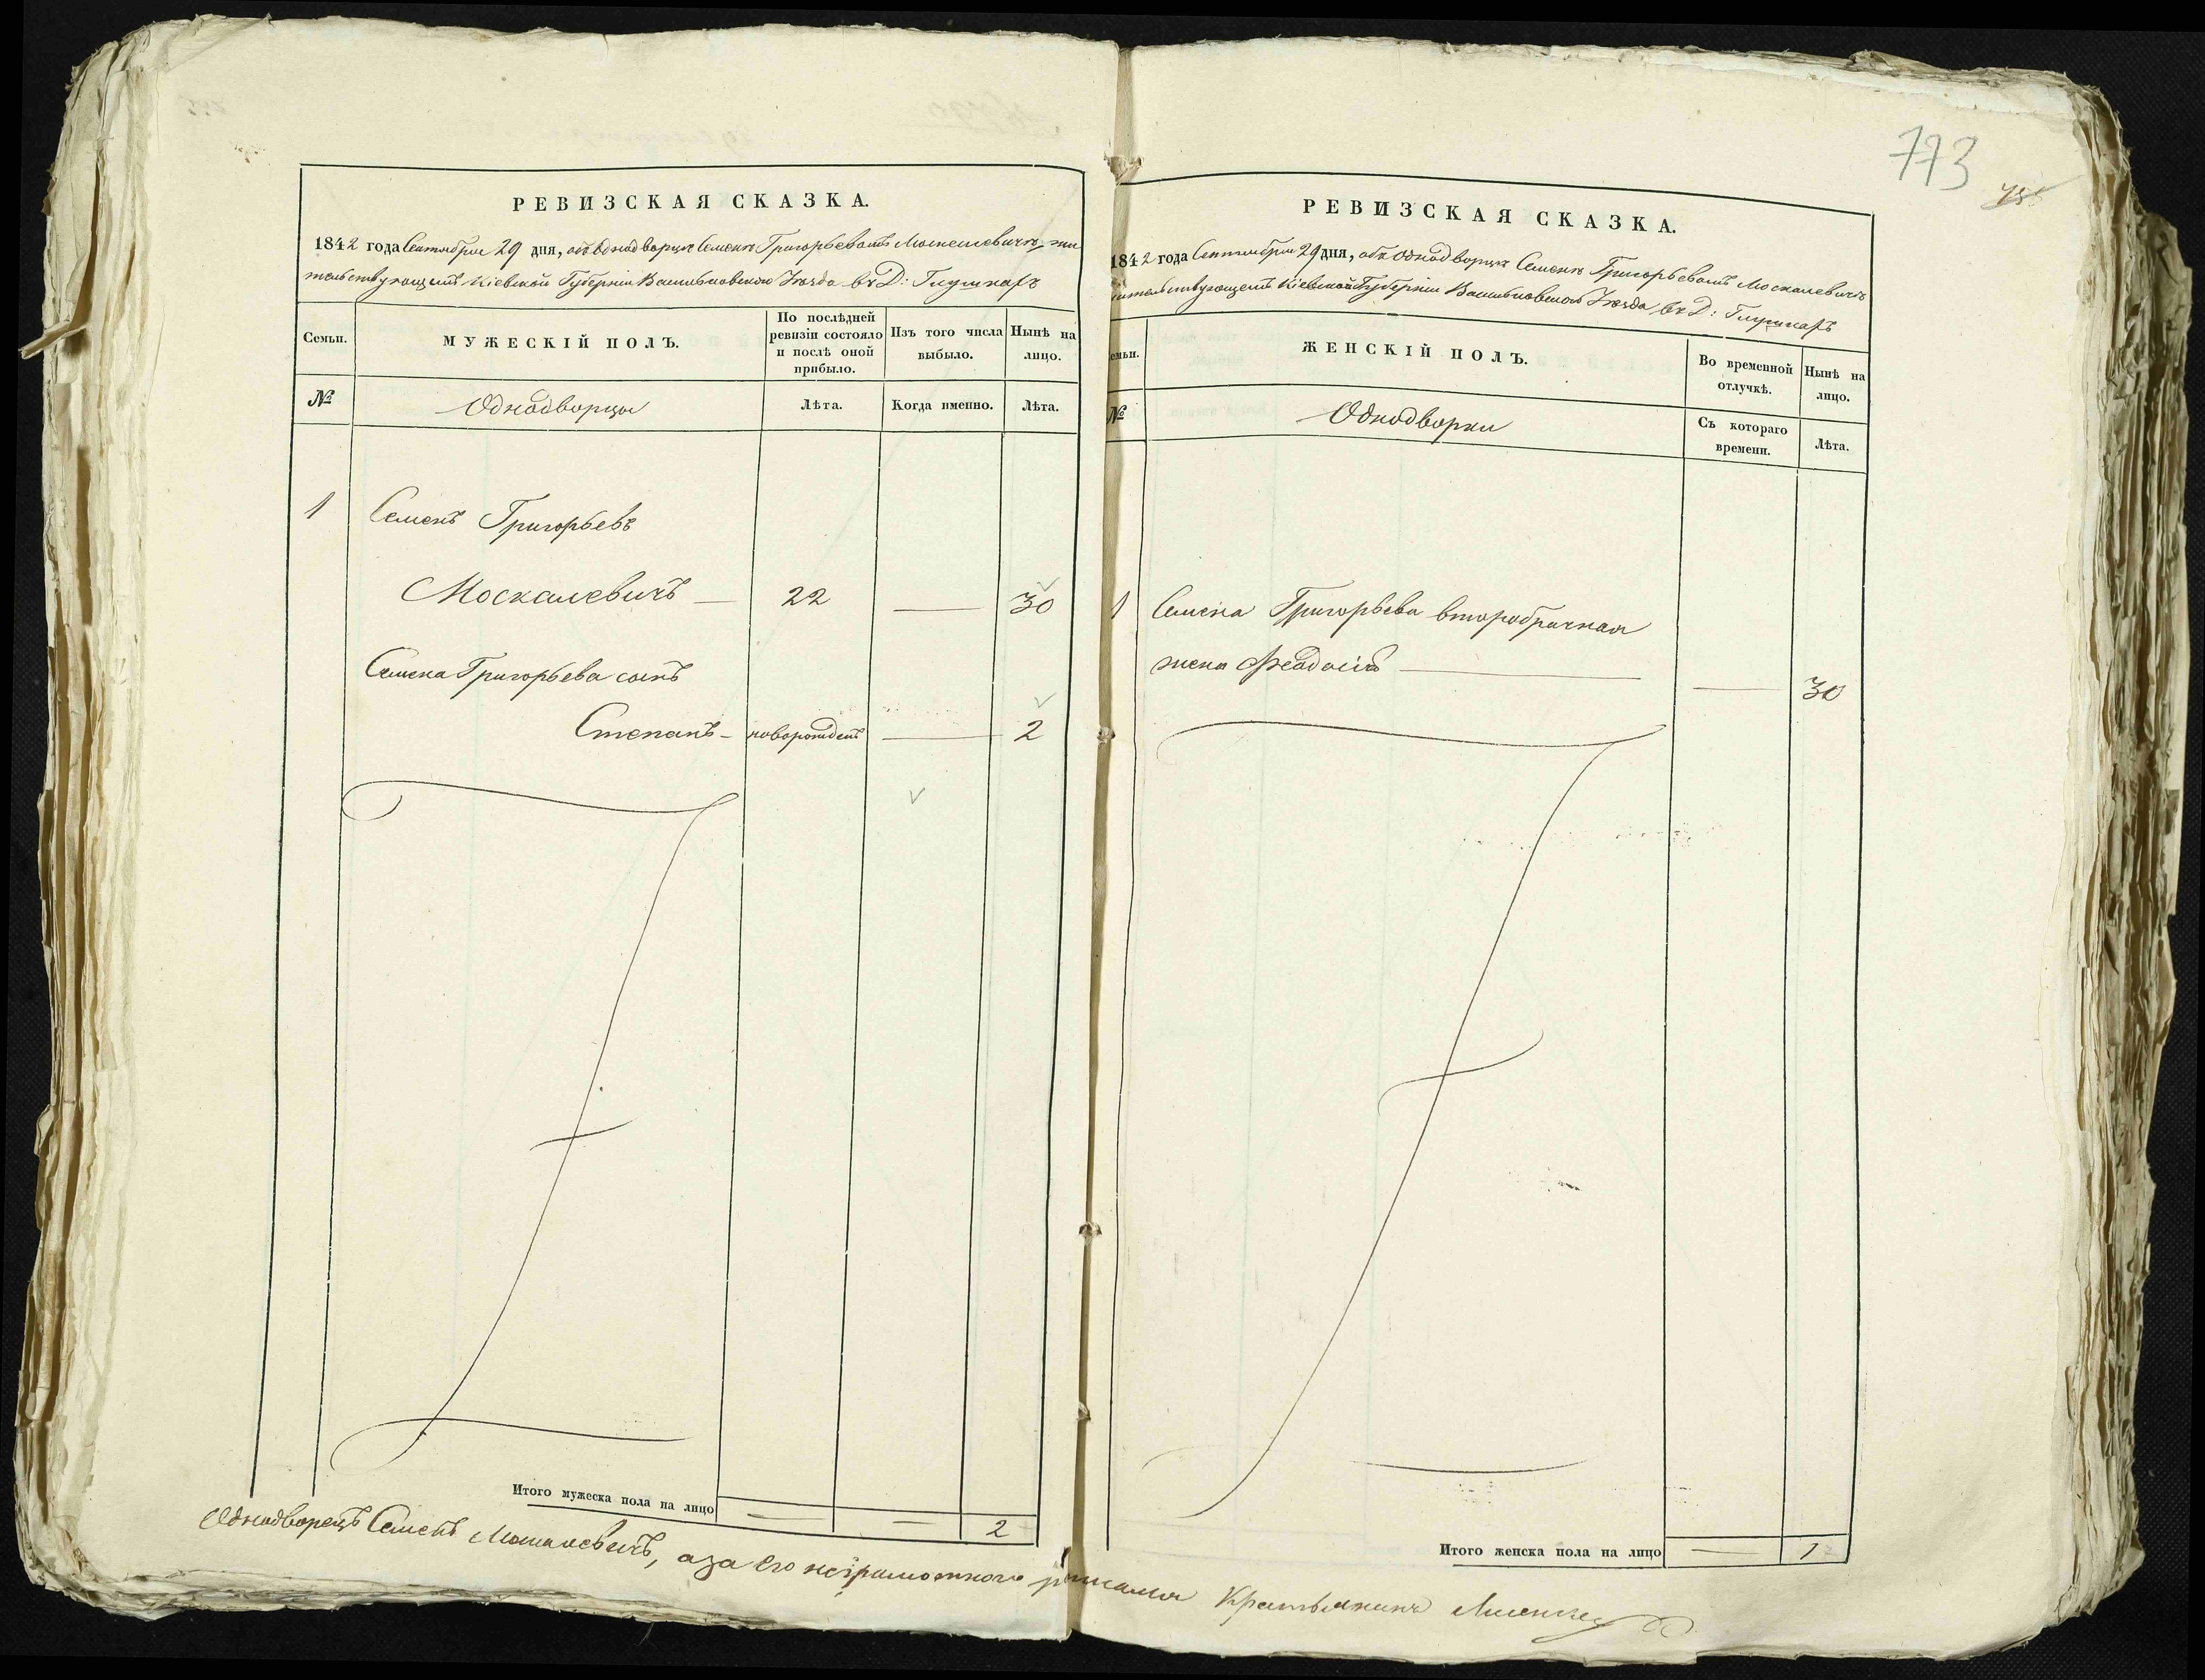 РЕВИЗСКАЯ СКАЗКА.
1842 года Сентября 29 дня, объ Однодворцѣ Семенѣ Григорьевомъ Москалевичѣ, жи
тельствующемъ Кіевской Губерніи Васильковскаго Уѣзда въ Д: Глушкахъ
Семьи.
МУЖЕСКІЙ ПОЛЪ.
По послѣдней ревизіи состояло и послѣ оной прибыло.
Изъ того числа выбыло.
Нынѣ на лицо.
№
Однодворцы
Лѣта.
Когда именно.
Лѣта.
1 Семенъ Григорьевъ
Москалевичъ — 22 — 30
Семена Григорьева сынъ
Степанъ — новорожден — 2
Итого мужеска пола на лицо — — 2
773
РЕВИЗСКАЯ СКАЗКА.
1842 года Сентября 29 дня, объ Однодворцѣ Семенѣ Григорьевомъ Москалевичѣ
жительствующемъ Кіевской Губерніи Васильковскаго Уѣзда въ Д: Глушкахъ
Семьи.
ЖЕНСКІЙ ПОЛЪ.
Во временной отлучкѣ.
Нынѣ на лицо.
№
Однодворки
Съ котораго времени.
Лѣта.
1 Семена Григорьева второбрачная
жена Феодосія — — 30
Итого женска пола на лицо — 1
Однодворецъ Семенъ Москалевичъ, а за его неграмотного